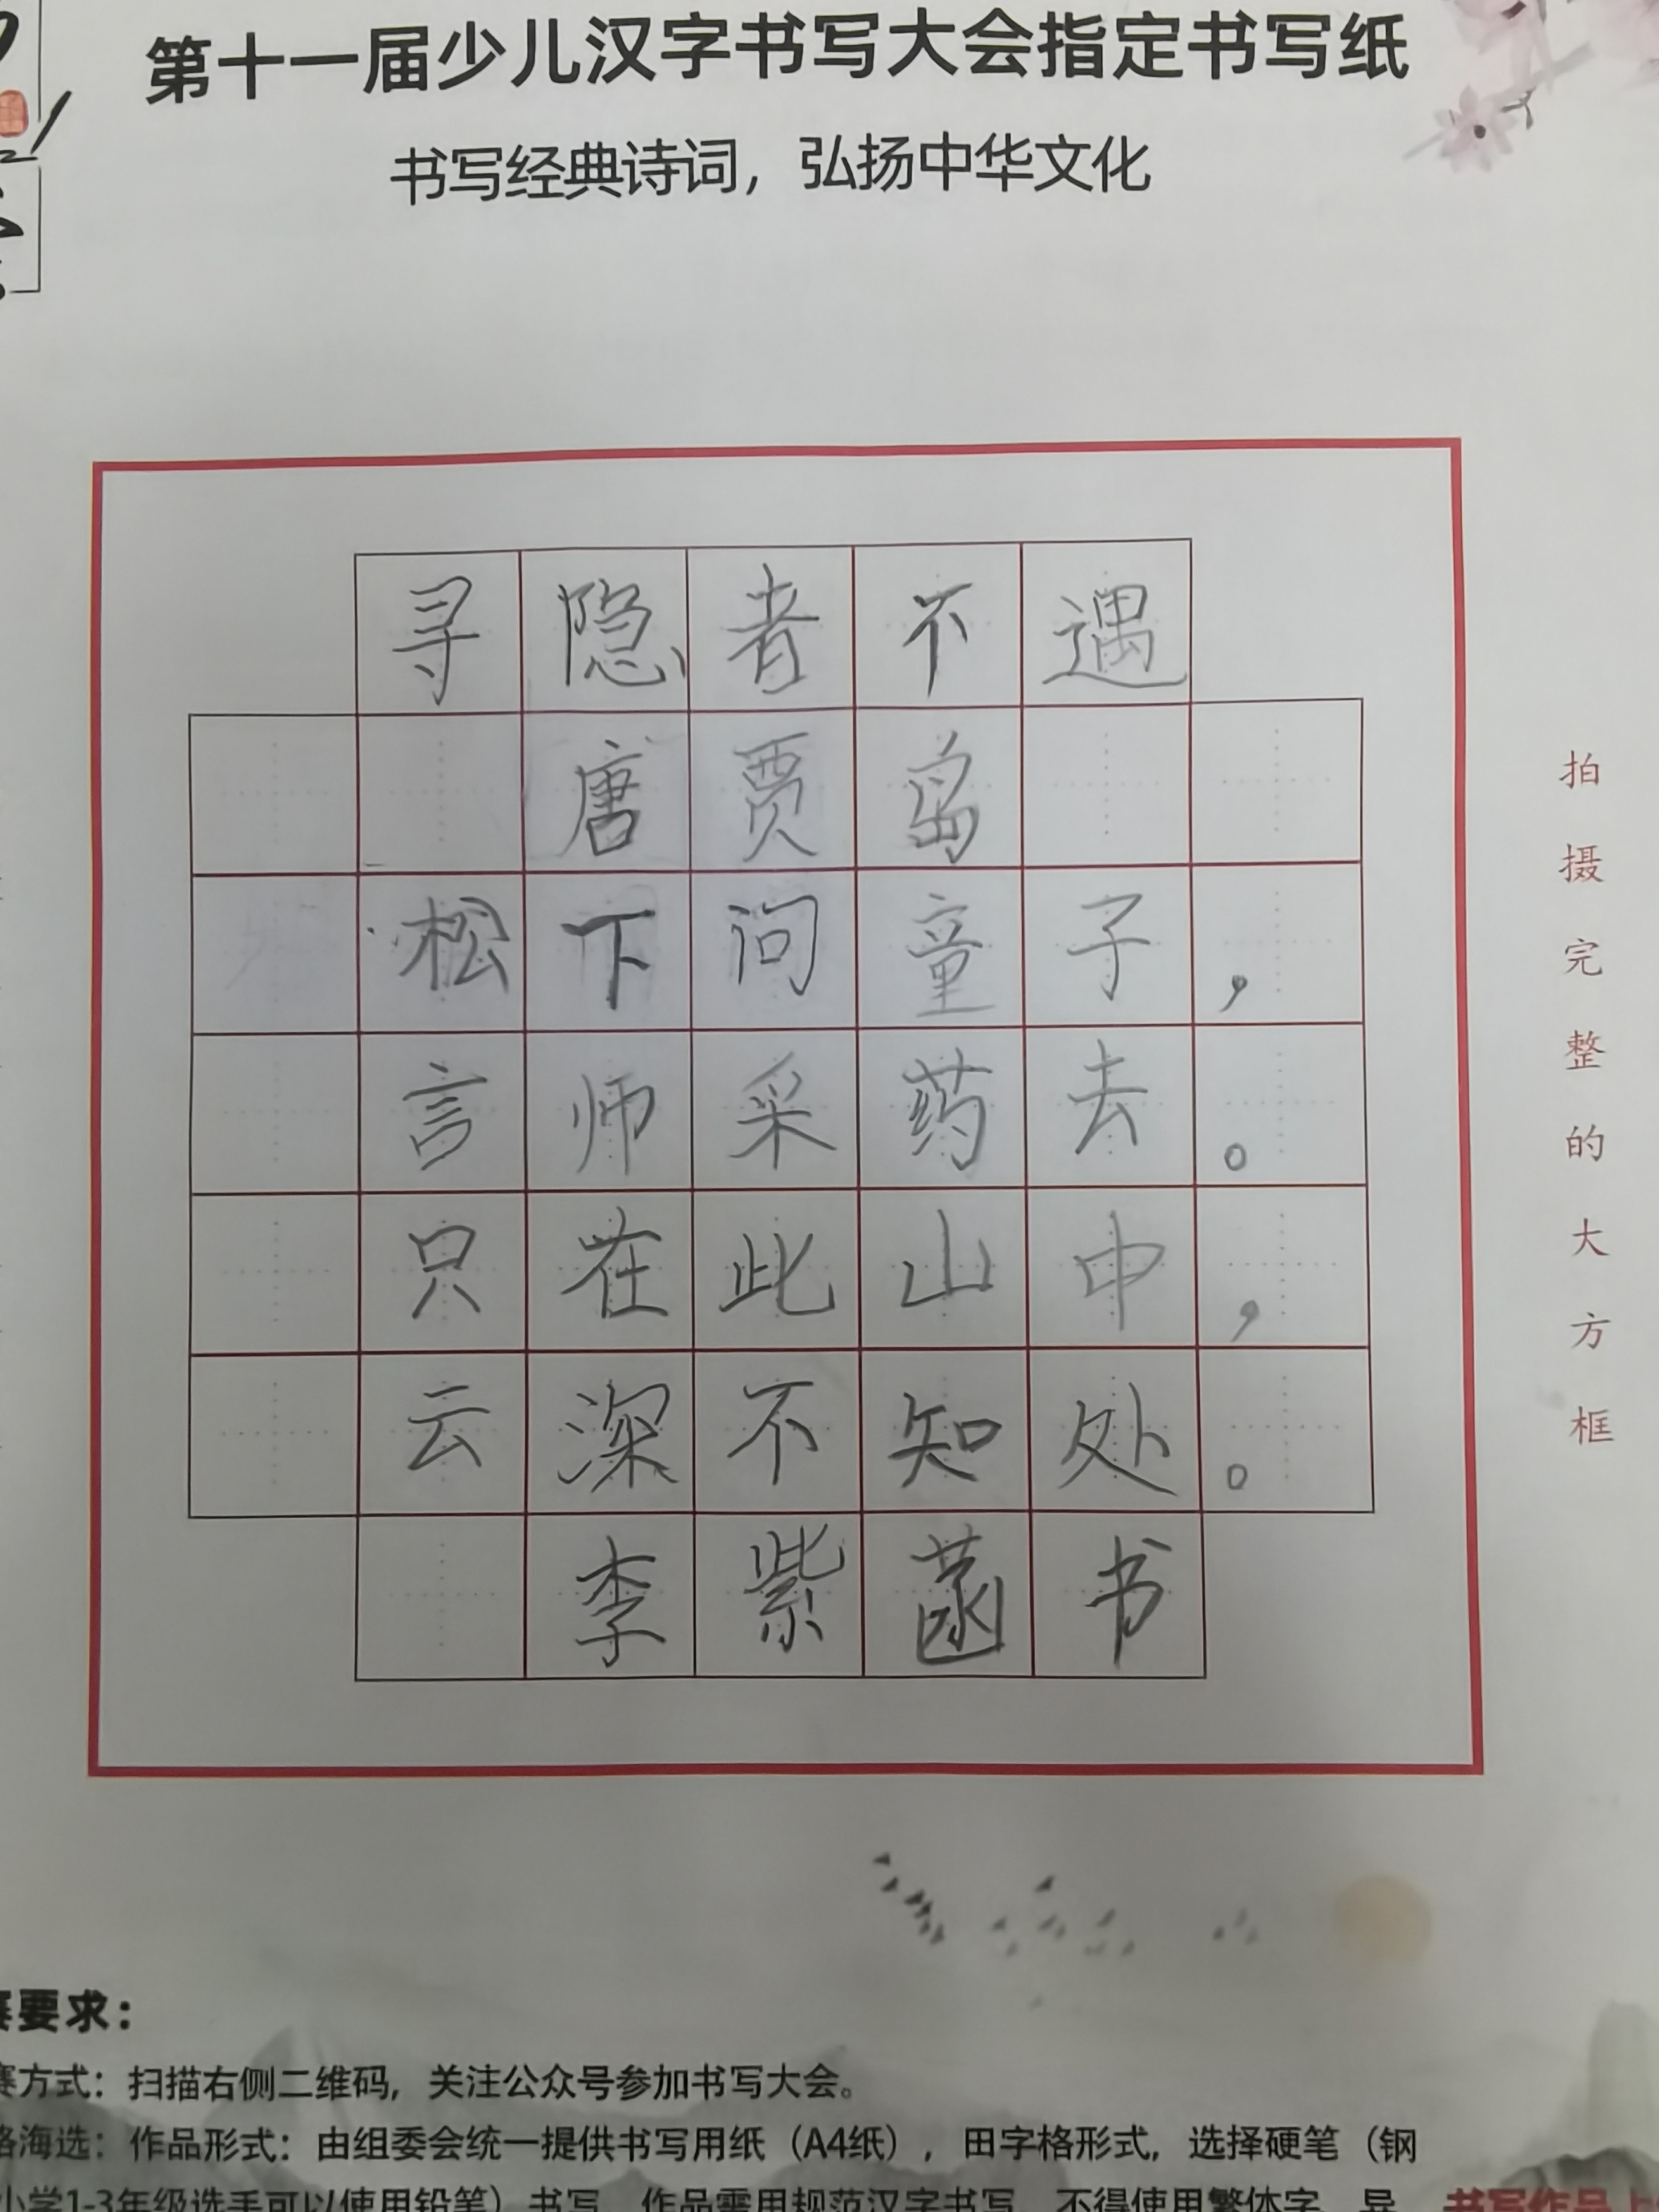 第十一届少儿汉字书写大会指定书写纸
书写经典诗词，弘扬中华文化
寻隐者不遇
唐贾岛
松下问童子，
言师采药去。
只在此山中，
云深不知处。
李紫菡书
拍摄完整的大方框
赛要求：
赛方式：扫描右侧二维码，关注公众号参加书写大会。
格海选：作品形式：由组委会统一提供书写用纸（A4纸），田字格形式，选择硬笔（钢
小学1-3年级选手可以使用铅笔）书写，作品需用规范汉字书写，不得使用繁体字、异
书写作品上